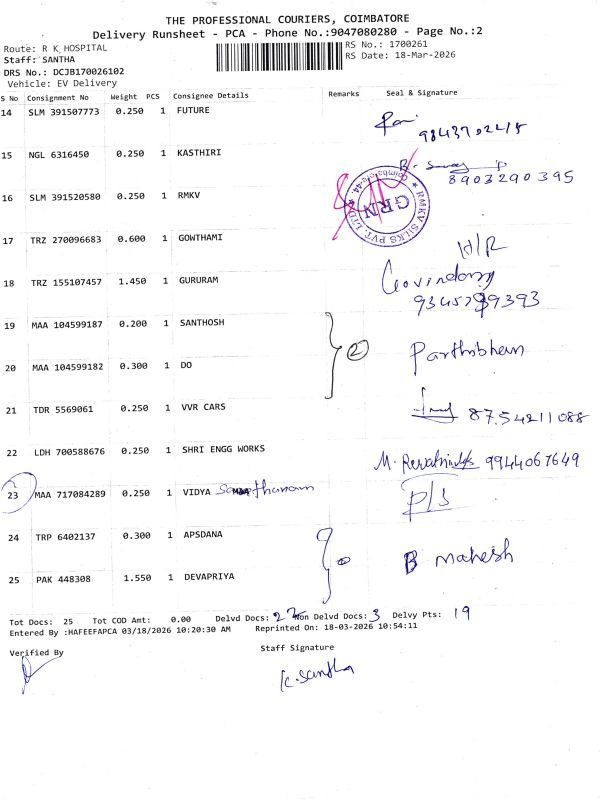 THE PROFESSIONAL COURIERS, COIMBATORE
Delivery Runsheet - PCA - Phone No.:9047080280 - Page No.:2
Route: R K HOSPITAL
RS No.: 1700261
Staff: SANTHA
RS Date: 18-Mar-2026
DRS No.: DCJB170026102
Vehicle: EV Delivery
S No Consignment No Weight PCS Consignee Details Remarks Seal & Signature
14 SLM 391507773 0.250 1 FUTURE
15 NGL 6316450 0.250 1 KASTHIRI
8903290395
16 SLM 391520580 0.250 1 RMKV
RMKV SILKS PVT. LTD. Coimbatore-44.
GRN
17 TRZ 270096683 0.600 1 GOWTHAMI
H/R
18 TRZ 155107457 1.450 1 GURURAM
19 MAA 104599187 0.200 1 SANTHOSH
2
20 MAA 104599182 0.300 1 DO
Parthibhan
21 TDR 5569061 0.250 1 VVR CARS
8754211088
22 LDH 700588676 0.250 1 SHRI ENGG WORKS
M. 9944067649
23 MAA 717084289 0.250 1 VIDYA
P/S
24 TRP 6402137 0.300 1 APSDANA
B Mahesh
25 PAK 448308 1.550 1 DEVAPRIYA
Tot Docs: 25 Tot COD Amt: 0.00 Delvd Docs: 22 Non Delvd Docs: 3 Delvy Pts: 19
Entered By :HAFEEFAPCA 03/18/2026 10:20:30 AM Reprinted On: 18-03-2026 10:54:11
Verified By
Staff Signature
K. Santha